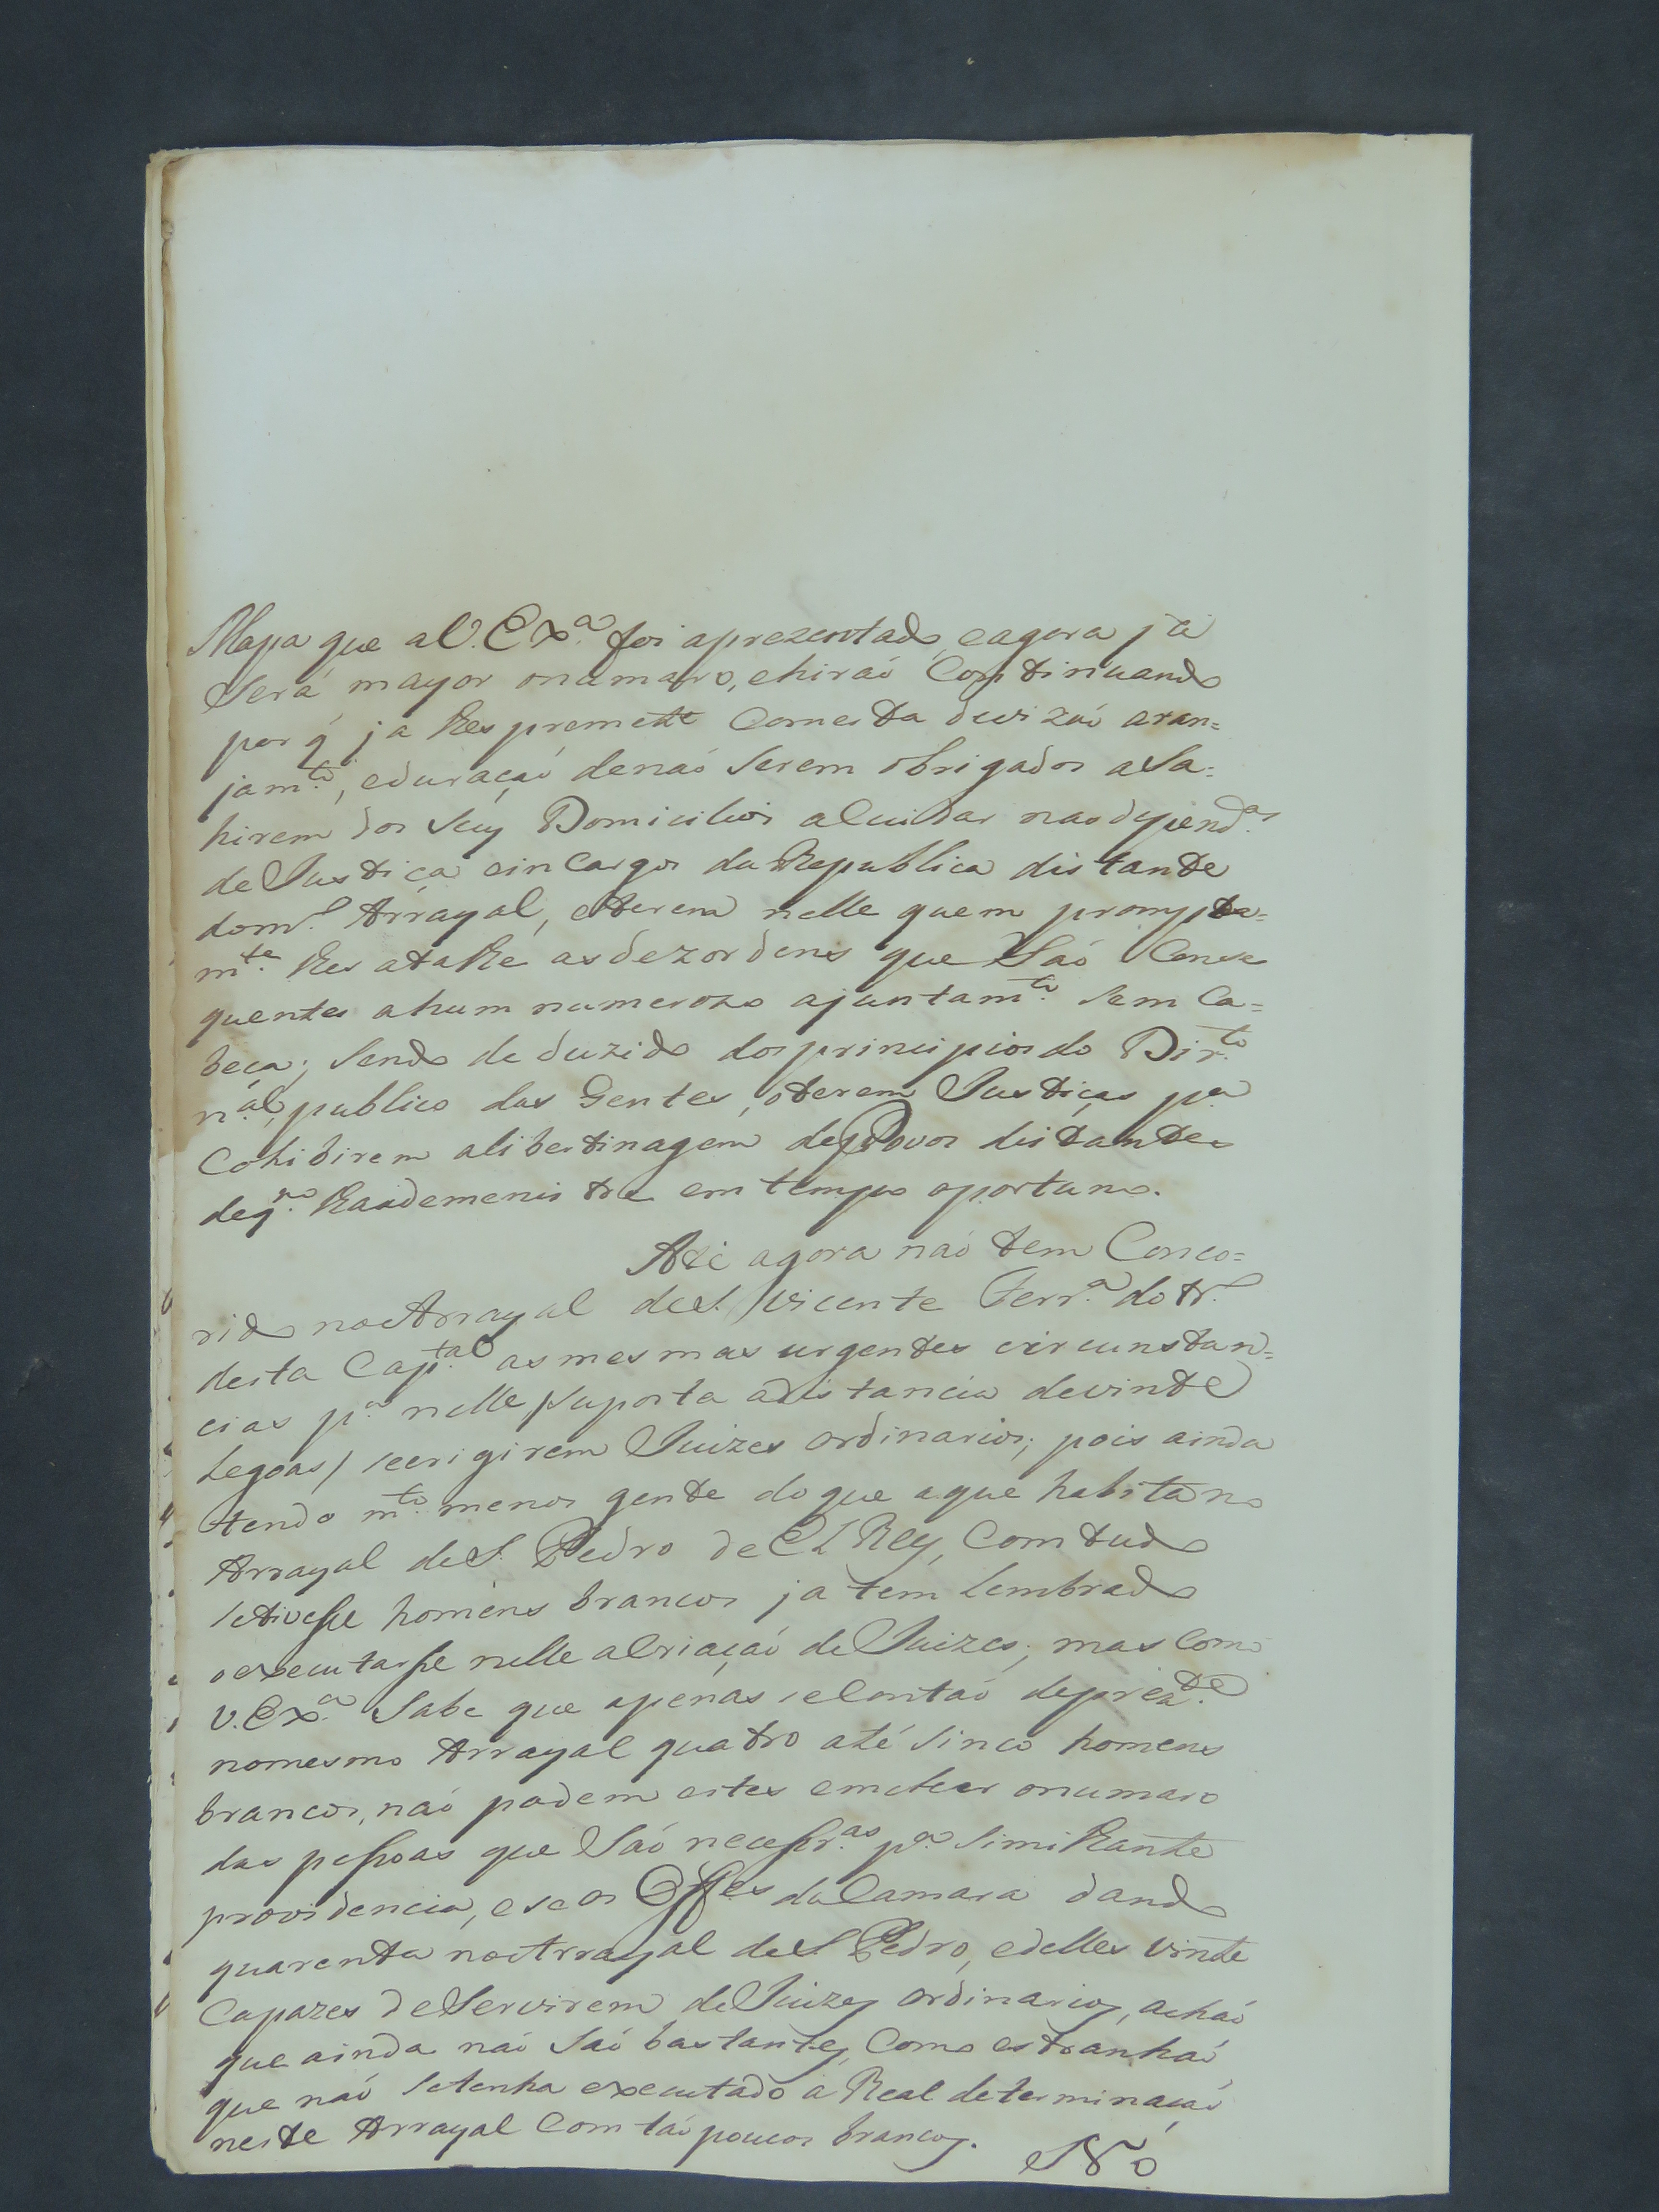 Mapa que a V. Ex.ª foi aprezentado, e agora já
Será mayor onumaro, e hiraó Continuando
por q̃ ja lhes premette Comesta divizaó aran=
jam.to, eduraçaó denaó Serem obrigados aSa=
hirem dos Seuş Domicilios aCuidar nas depend.as
de Justiça eincargos da Republica distante
dom.º Arrayal, eterem nelle quem prompta=
m.te lhes atalhe as dezordens que Saó Conse
quentes ahum numerozo ajuntam.to Sem Ca=
beça; Sendo deduzido dos principios do Dir.to
n.al, publico das Gentes, oterem Justiças p.ª
Cohibirem alibertinagem dos Povos distantes
deq.m lha ademenistre em tempo oportuno.
Até agora naó tem Conco=
rido no Arrayal de S. Vicente Ferr.ª do tr.º
desta Cap.tal as mesmas urgentes circunstan=
cias p.ª nelle /suposta adistancia devinte
Legoas/ seerigirem Juizes ordinarios; pois ainda
tendo m.to menos gente do que aque habita no
Arrayal de S. Pedro de El Rey, Com tudo
setivesse homens brancos ja tem Lembrado
oexecutarse nelle aCriaçaó de Juizes; mas Como
V. Ex.ª Sabe que apenas seContaó deprez.te
nomesmo Arrayal quatro até Sinco homens
brancos, naó podem estes encher onumaro
das pessoas que Saó necessr.as p.ª Similhante
providencia, e se os Off.es da Camara dando
quarenta no Arrayal de S Pedro, edelles vinte
Capazes de Servirem de Juizes ordinarios, achaó
que ainda naó Saó bastantes, Como estranhaó
que naó setenha executado a Real determinaçaó
neste Arrayal Com taó poucos brancos.
Naó